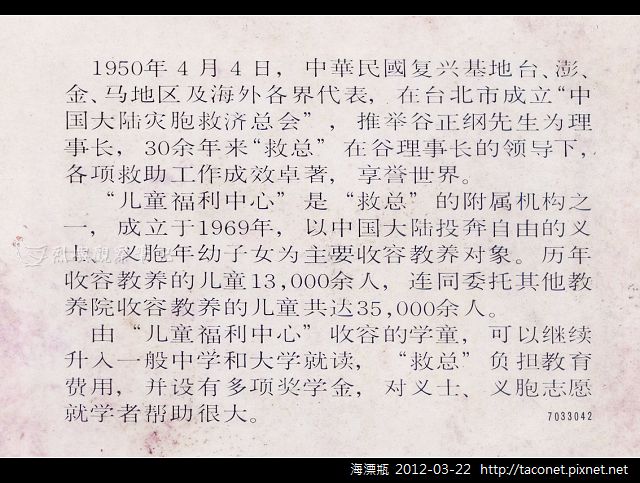 1950年4月4日，中華民國复兴基地台、澎、
金、马地区及海外各界代表，在台北市成立“中
国大陆灾胞救济总会”，推举谷正纲先生为理
事长，30余年来“救总”在谷理事长的领导下，
各项救助工作成效卓著，享誉世界。
“儿童福利中心”是“救总”的附属机构之
一，成立于1969年，以中国大陆投奔自由的义
士、义胞年幼子女为主要收容教养对象。历年
收容教养的儿童13,000余人，连同委托其他教
养院收容教养的儿童共达35,000余人。
由“儿童福利中心”收容的学童，可以继续
升入一般中学和大学就读，“救总”负担教育
费用，并设有多项奖学金，对义士、义胞志愿
就学者帮助很大。
7033042
海漂瓶 2012-03-22 http://taconet.pixnet.net